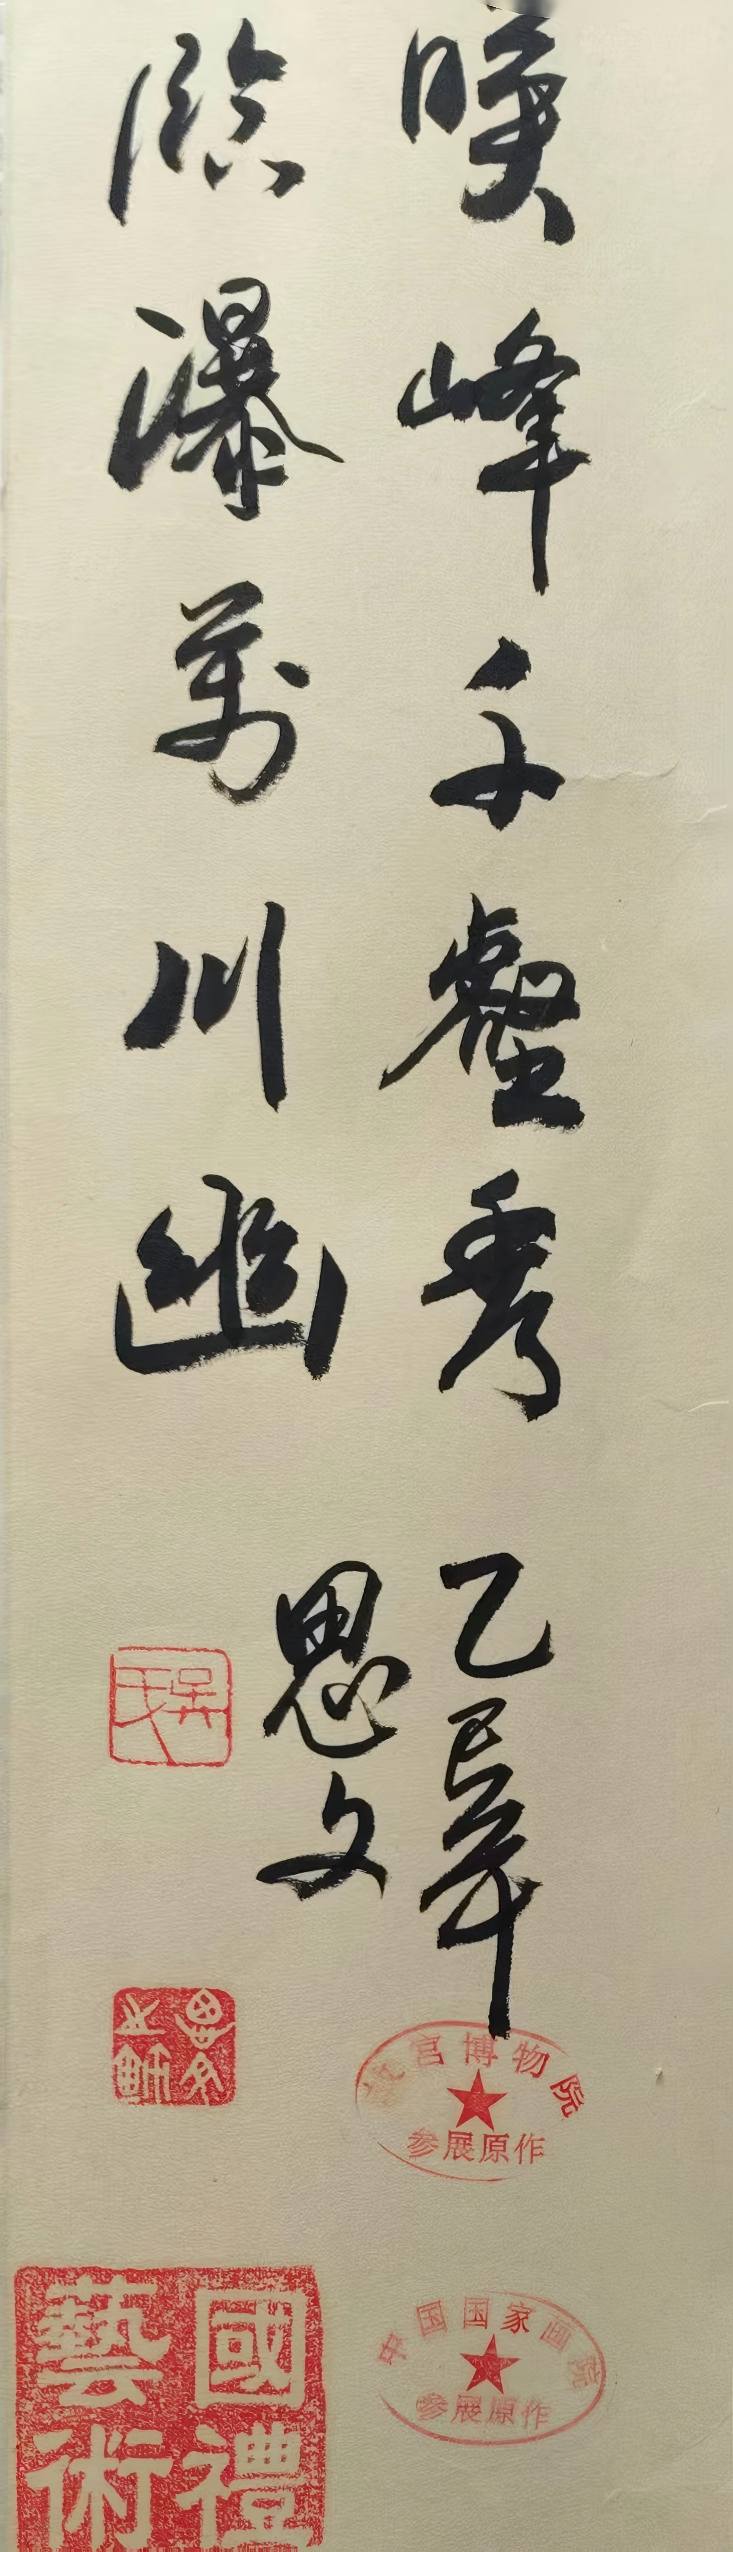 暎峰千壑秀
臨瀑万川幽
乙巳年
思文
吴氏
故宫博物院
参展原作
中国国家画院
参展原作
國禮
藝術